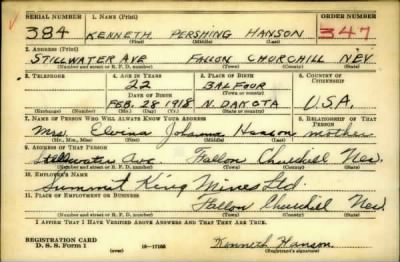 SERIAL NUMBER 1. NAME (Print) ORDER NUMBER
384 KENNETH PERSHING HANSON 347
(First) (Middle) (Last)
2. ADDRESS (Print)
STILLWATER AVE FALLON CHURCHILL NEV
(Number and street or R. F. D. number) (Town) (County) (State)
3. TELEPHONE 4. AGE IN YEARS 5. PLACE OF BIRTH 6. COUNTRY OF CITIZENSHIP
22 BALFOUR
DATE OF BIRTH (Town or county)
FEB. 28 1918 N. DAKOTA U.S.A.
(Exchange) (Number) (Mo.) (Day) (Yr.) (State or country)
7. NAME OF PERSON WHO WILL ALWAYS KNOW YOUR ADDRESS 8. RELATIONSHIP OF THAT PERSON
Mrs. Elvina Johanna Hanson mother
(Mr., Mrs., Miss) (First) (Middle) (Last)
9. ADDRESS OF THAT PERSON
Stillwater Ave. Fallon Churchill Nev.
(Number and street or R. F. D. number) (Town) (County) (State)
10. EMPLOYER'S NAME
Summit King Mines Ltd.
11. PLACE OF EMPLOYMENT OR BUSINESS
Fallon Churchill Nev.
(Number and street or R. F. D. number) (Town) (County) (State)
I AFFIRM THAT I HAVE VERIFIED ABOVE ANSWERS AND THAT THEY ARE TRUE.
REGISTRATION CARD
D. S. S. Form 1 (over) 16-17105 Kenneth Hanson
(Registrant's signature)